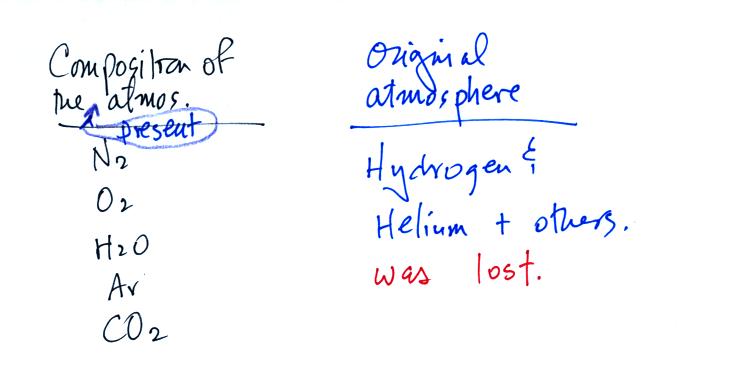 Composition of
the atmos.
present
N2
O2
H2O
Ar
CO2
Original
atmosphere
Hydrogen &
Helium + others.
was lost.